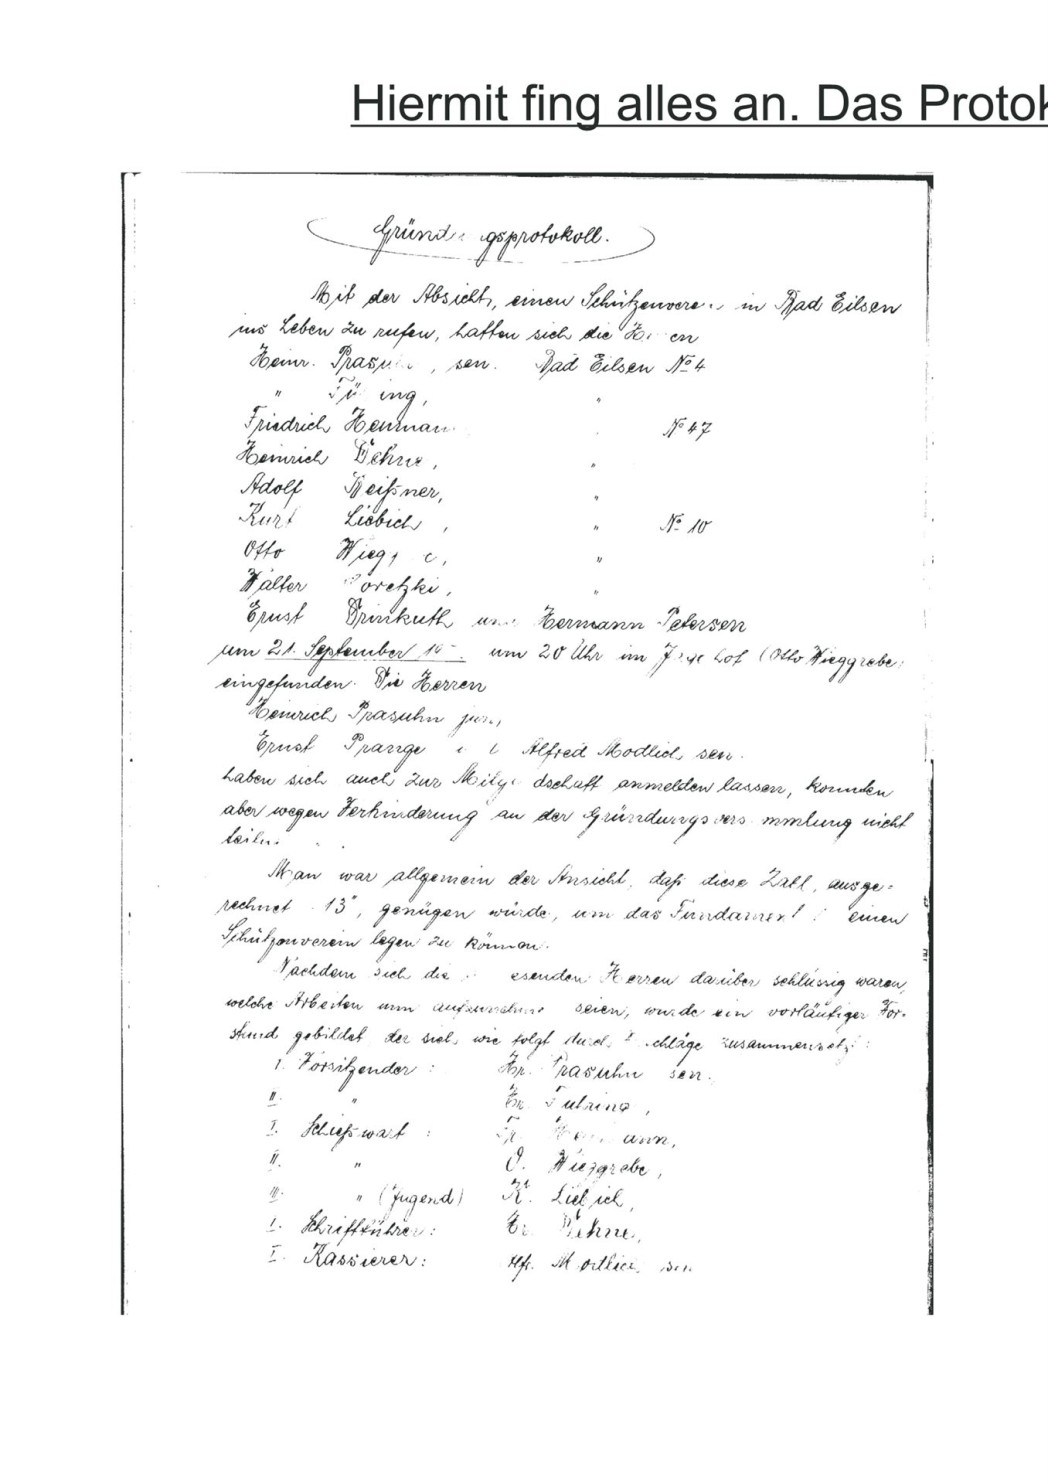 Hiermit fing alles an. Das Protok
Gründ gsprotokoll.
Mit der Absicht, einen Schützenvere in Bad Eilsen
ins Leben zu rufen, hatten sich die H en
Heinr. Prasu , sen. Bad Eilsen No 4
" ing, "
Friedrich Heuman No 47
Heinrich Dehne, "
Adolf Meißner, "
Kurt Liebich, " No 10
Otto Wieg e, "
Walter oretzki, "
Ernst Brinkuth un Hermann Petersen
um 21. September um 20 Uhr im hof (Otto Wieggrebe,
eingefunden. Die Herren
Heinrich Prasuhn jun,
Ernst Prange Alfred Modlich sen.
haben sich auch zur Mitg dschaft anmelden lassen, konnten
aber wegen Verhinderung an der Gründungsvers mmlung nicht
teiln.
Man war allgemein der Ansicht, daß diese Zahl, ausge-
rechnet 13", genügen würde, um das Fundament einen
Schützenverein legen zu können.
Nachdem sich die esenden Herren darüber schlüssig waren,
welche Arbeiten nun seien, wurde ein vorläufiger Vor-
stand gebildet der sich wie folgt durch chläge zusammensetzt:
I. Vorsitzender: Hr. Prasuhn sen.
II. "
I. Schießwart: Fr. ann,
II. " O. Wieggrebe,
III. " (Jugend) K. Lieb ich,
I. Schriftführer: Hr. Dehne,
I. Kassierer: Alfr. M odlich sen